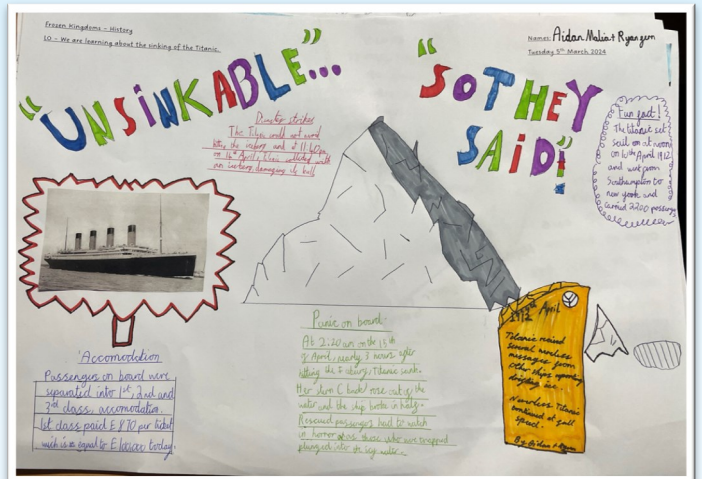 Frozen Kingdoms - History
LO - We are learning about the sinking of the Titanic.
Names: Aidan Malia + Ryan
Tuesday 5th March 2024
"UNSINKABLE"...
"SO THEY
SAID!"
Disaster strikes
The Titanic could not avoid
hitting the iceberg and at 11:40pm
on 14th April, Titanic collided with
an iceberg, damaging its hull
Fun fact!
The titanic set
sail on at noon
on 10th April 1912
and went from
Southampton to
new york and
carried 2200 passengers
Accomodation
Passengers on board were
separated into 1st, 2nd and
3rd class, accomodation.
1st class paid £870 per ticket
wich is equal to £100,000 today.
Panic on board
At 2:20 am on the 15th
of April, nearly 3 hours after
hitting the iceberg, Titanic sank.
Her stern (back) rose out of the
water and the ship broke in half.
Rescued passengers had to watch
in horror as those who were trapped
plunged into the icy water.
April
1912
Titanic recived
several wireless
messages from
other ships reporting
drifting ice.
Titanic
continued at full
speed.
By Aidan + Ryan